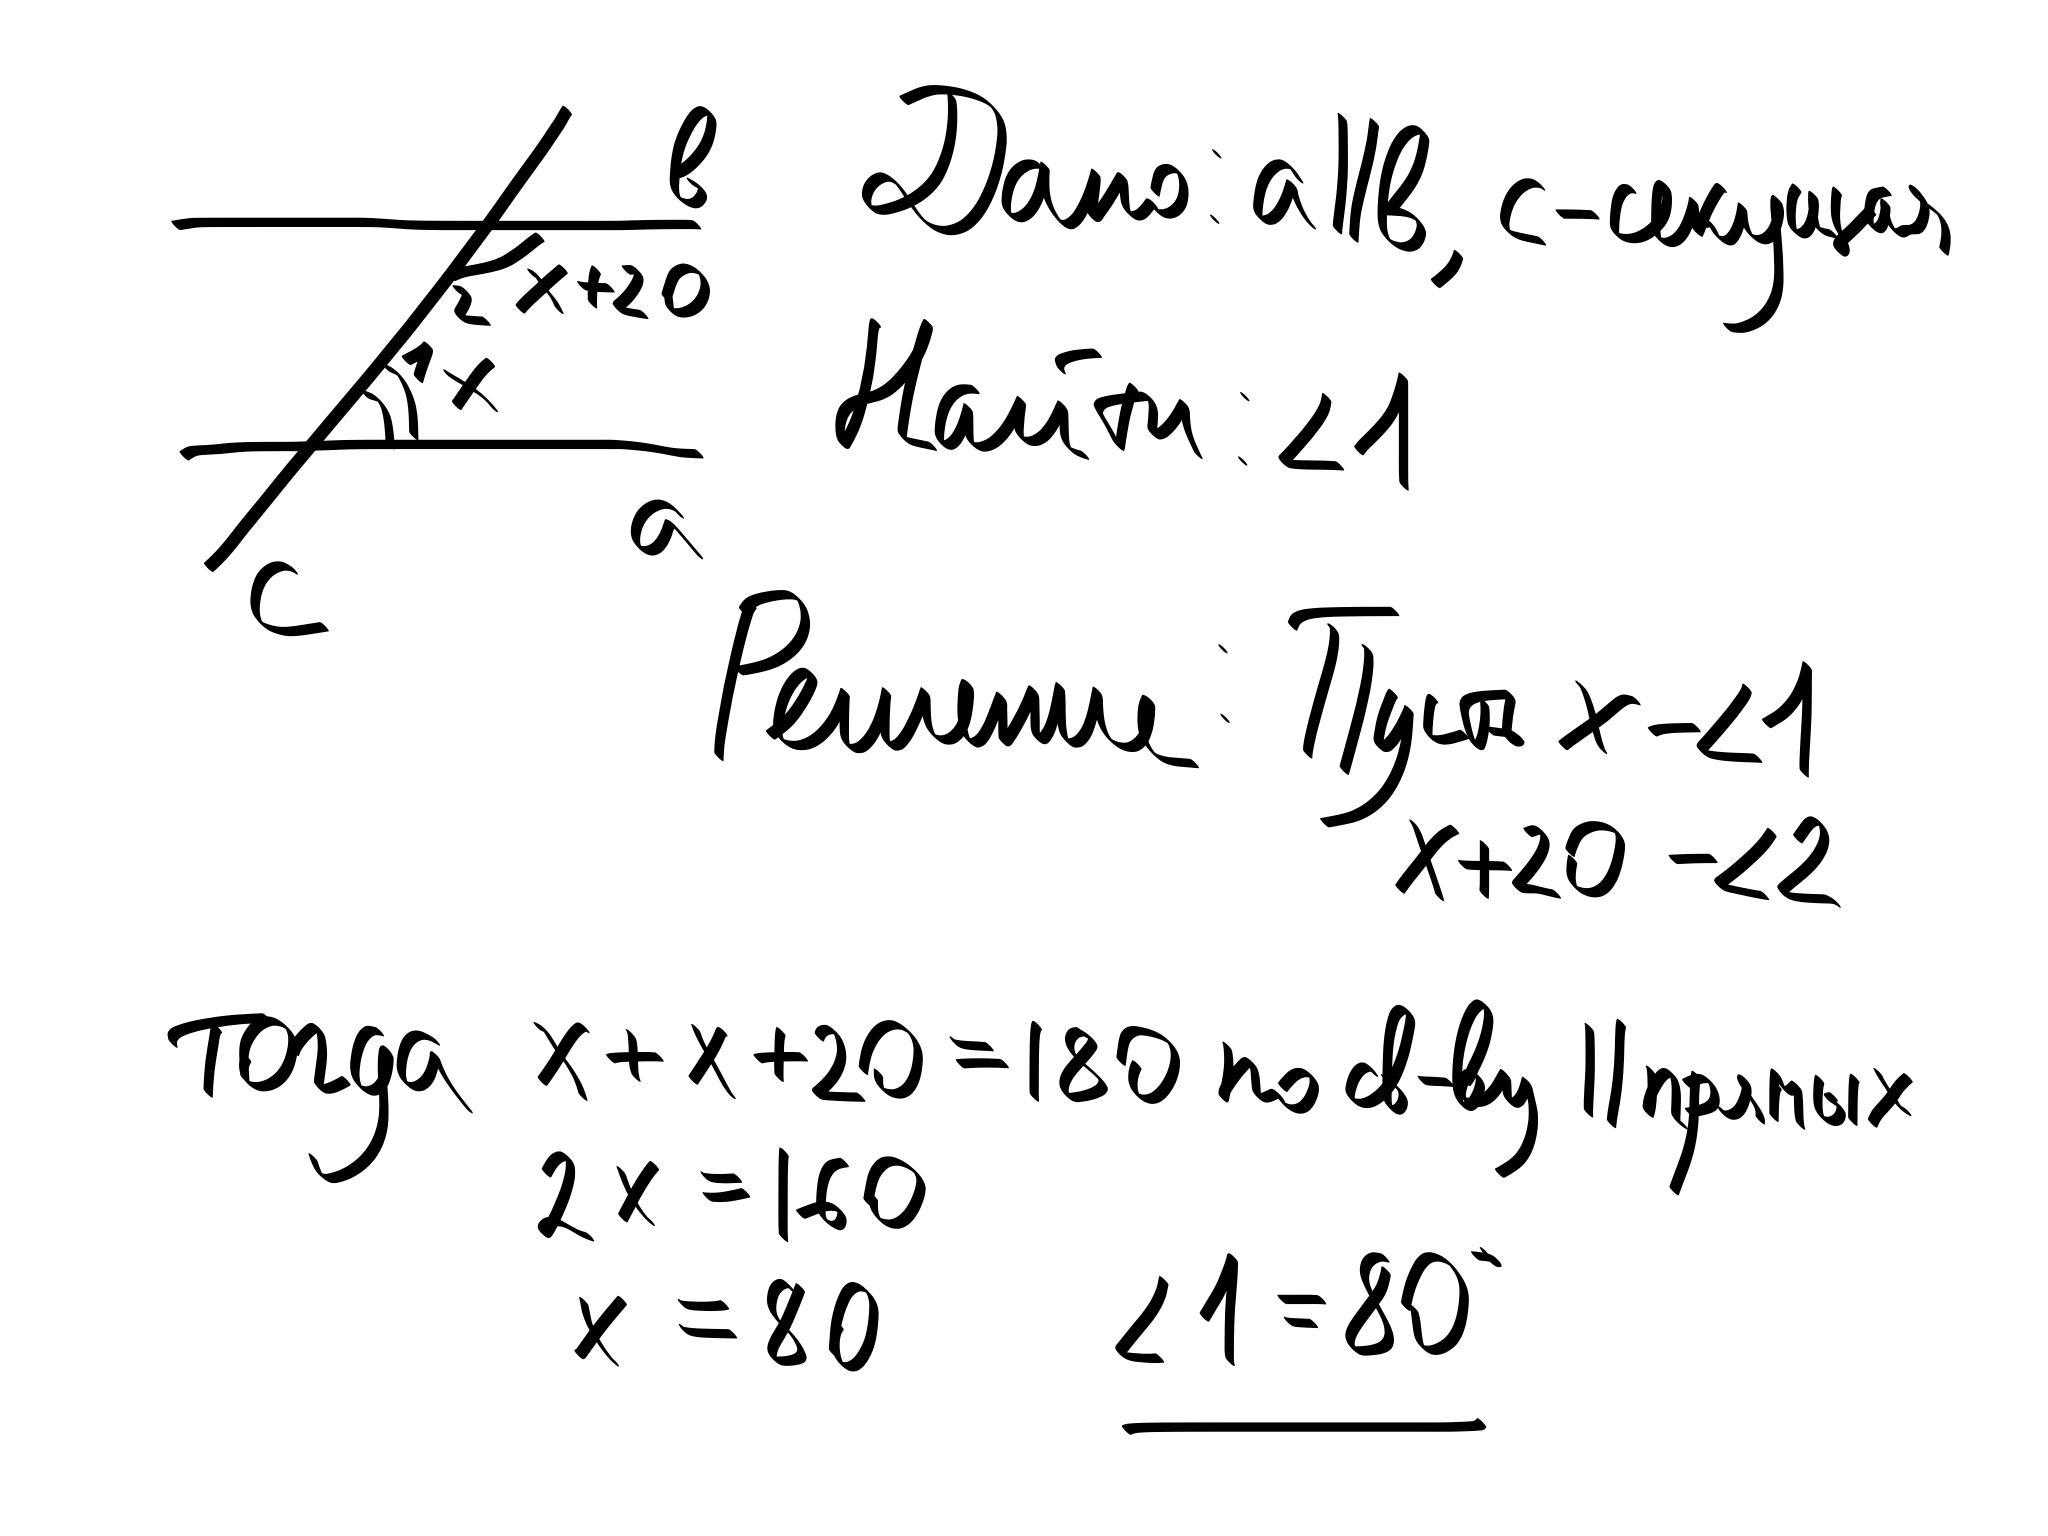 в
2 x+20
1 x
a
c
Дано: a||в, c-секущая
Найти: ∠1
Решение: Пусть x-∠1
x+20 -∠2
Тогда x+x+20=180 по св-ву ||прямых
2x=160
x=80
∠1=80°